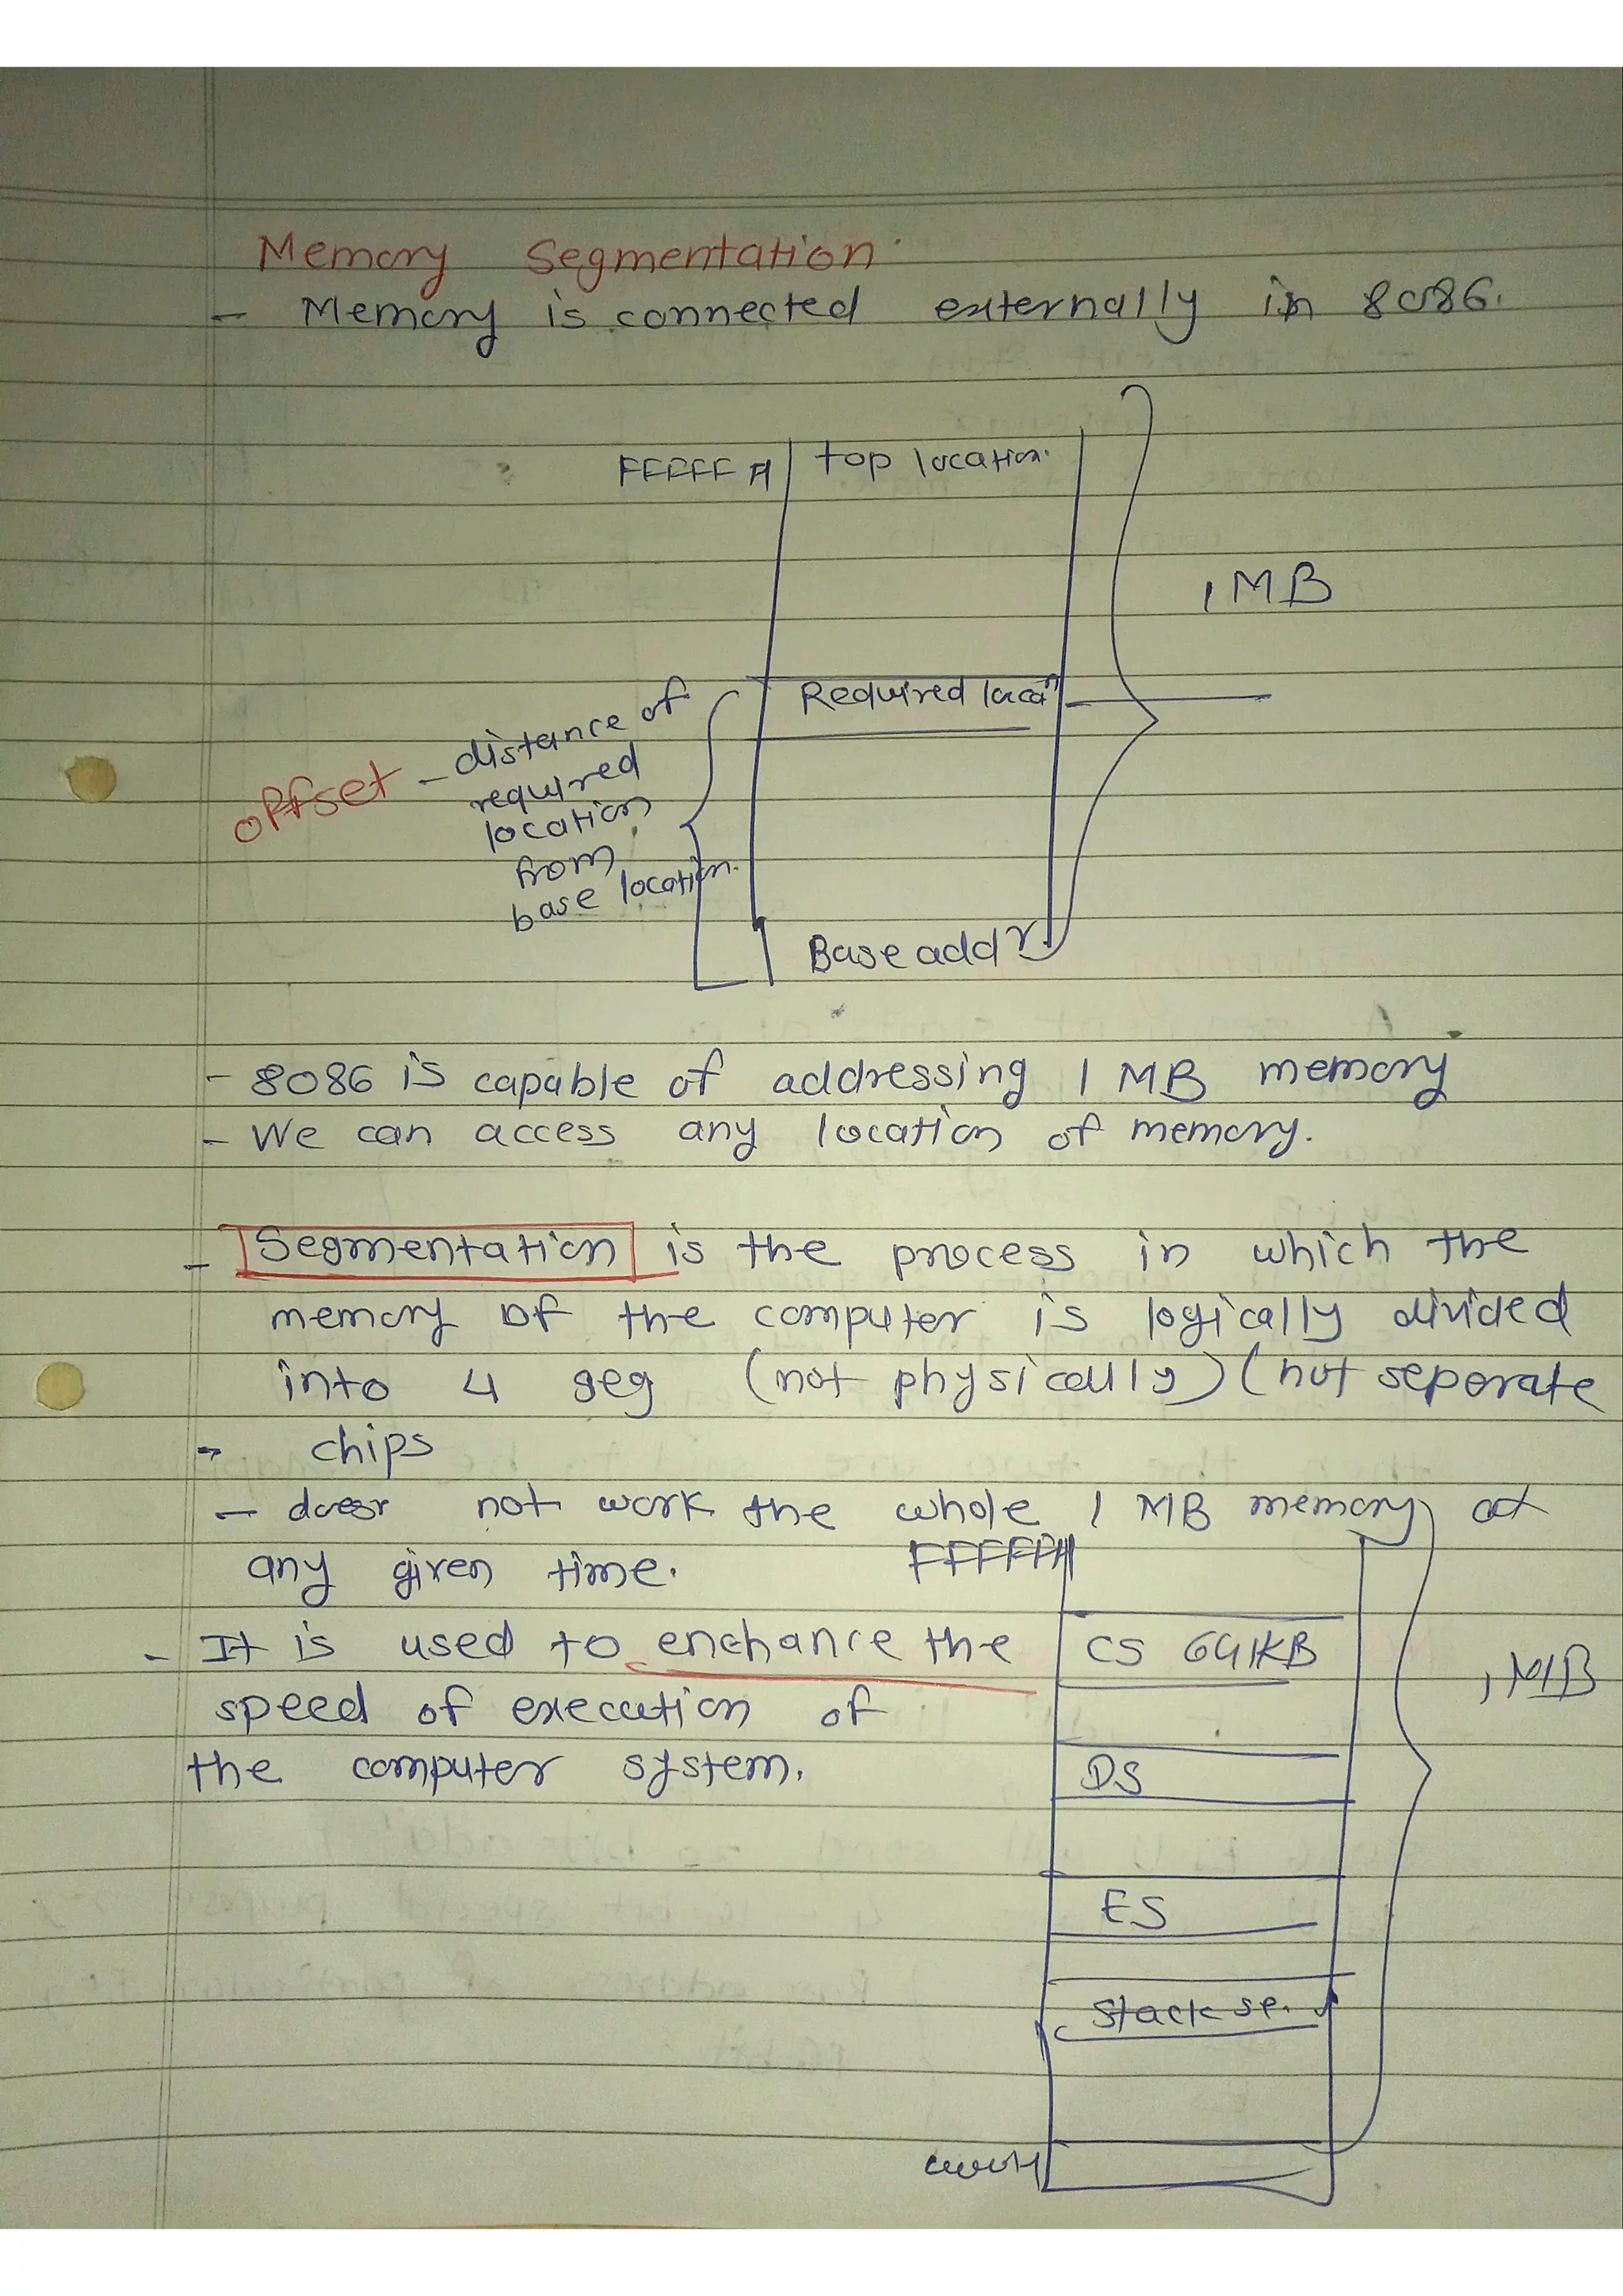 Memory Segmentation.
- Memory is connected externally in 8086.
FFFFF H top location.
1 MB
Required locan
offset - distance of
required
location
from
base location.
Base addr.
- 8086 is capable of addressing 1 MB memory
- We can access any location of memory.
- Segmentation is the process in which the
memory of the computer is logically divided
into 4 seg (not physically) (not seperate
- chips
- does not work the whole 1 MB memory at
any given time. FFFFFH
- It is used to enchance the
speed of execution of
the computer system.
CS 64KB
1 MB
DS
ES
Stack se.